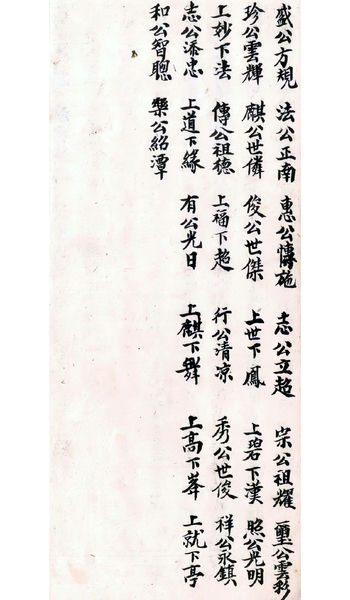 盛公方規 法公正南 惠公博施 志公立超 宗公祖耀 璽公雲彩
珍公雲輝 麒公世憐 俊公世傑 上世下鳳 上碧下漢 照公光明
上妙下法 傳公祖德 上福下超 行公清凉 秀公世俊 祥公永鎮
志公添忠 上道下緣 有公光日 上麒下舞 上高下峯 上就下亭
和公智聰 樂公紹潭